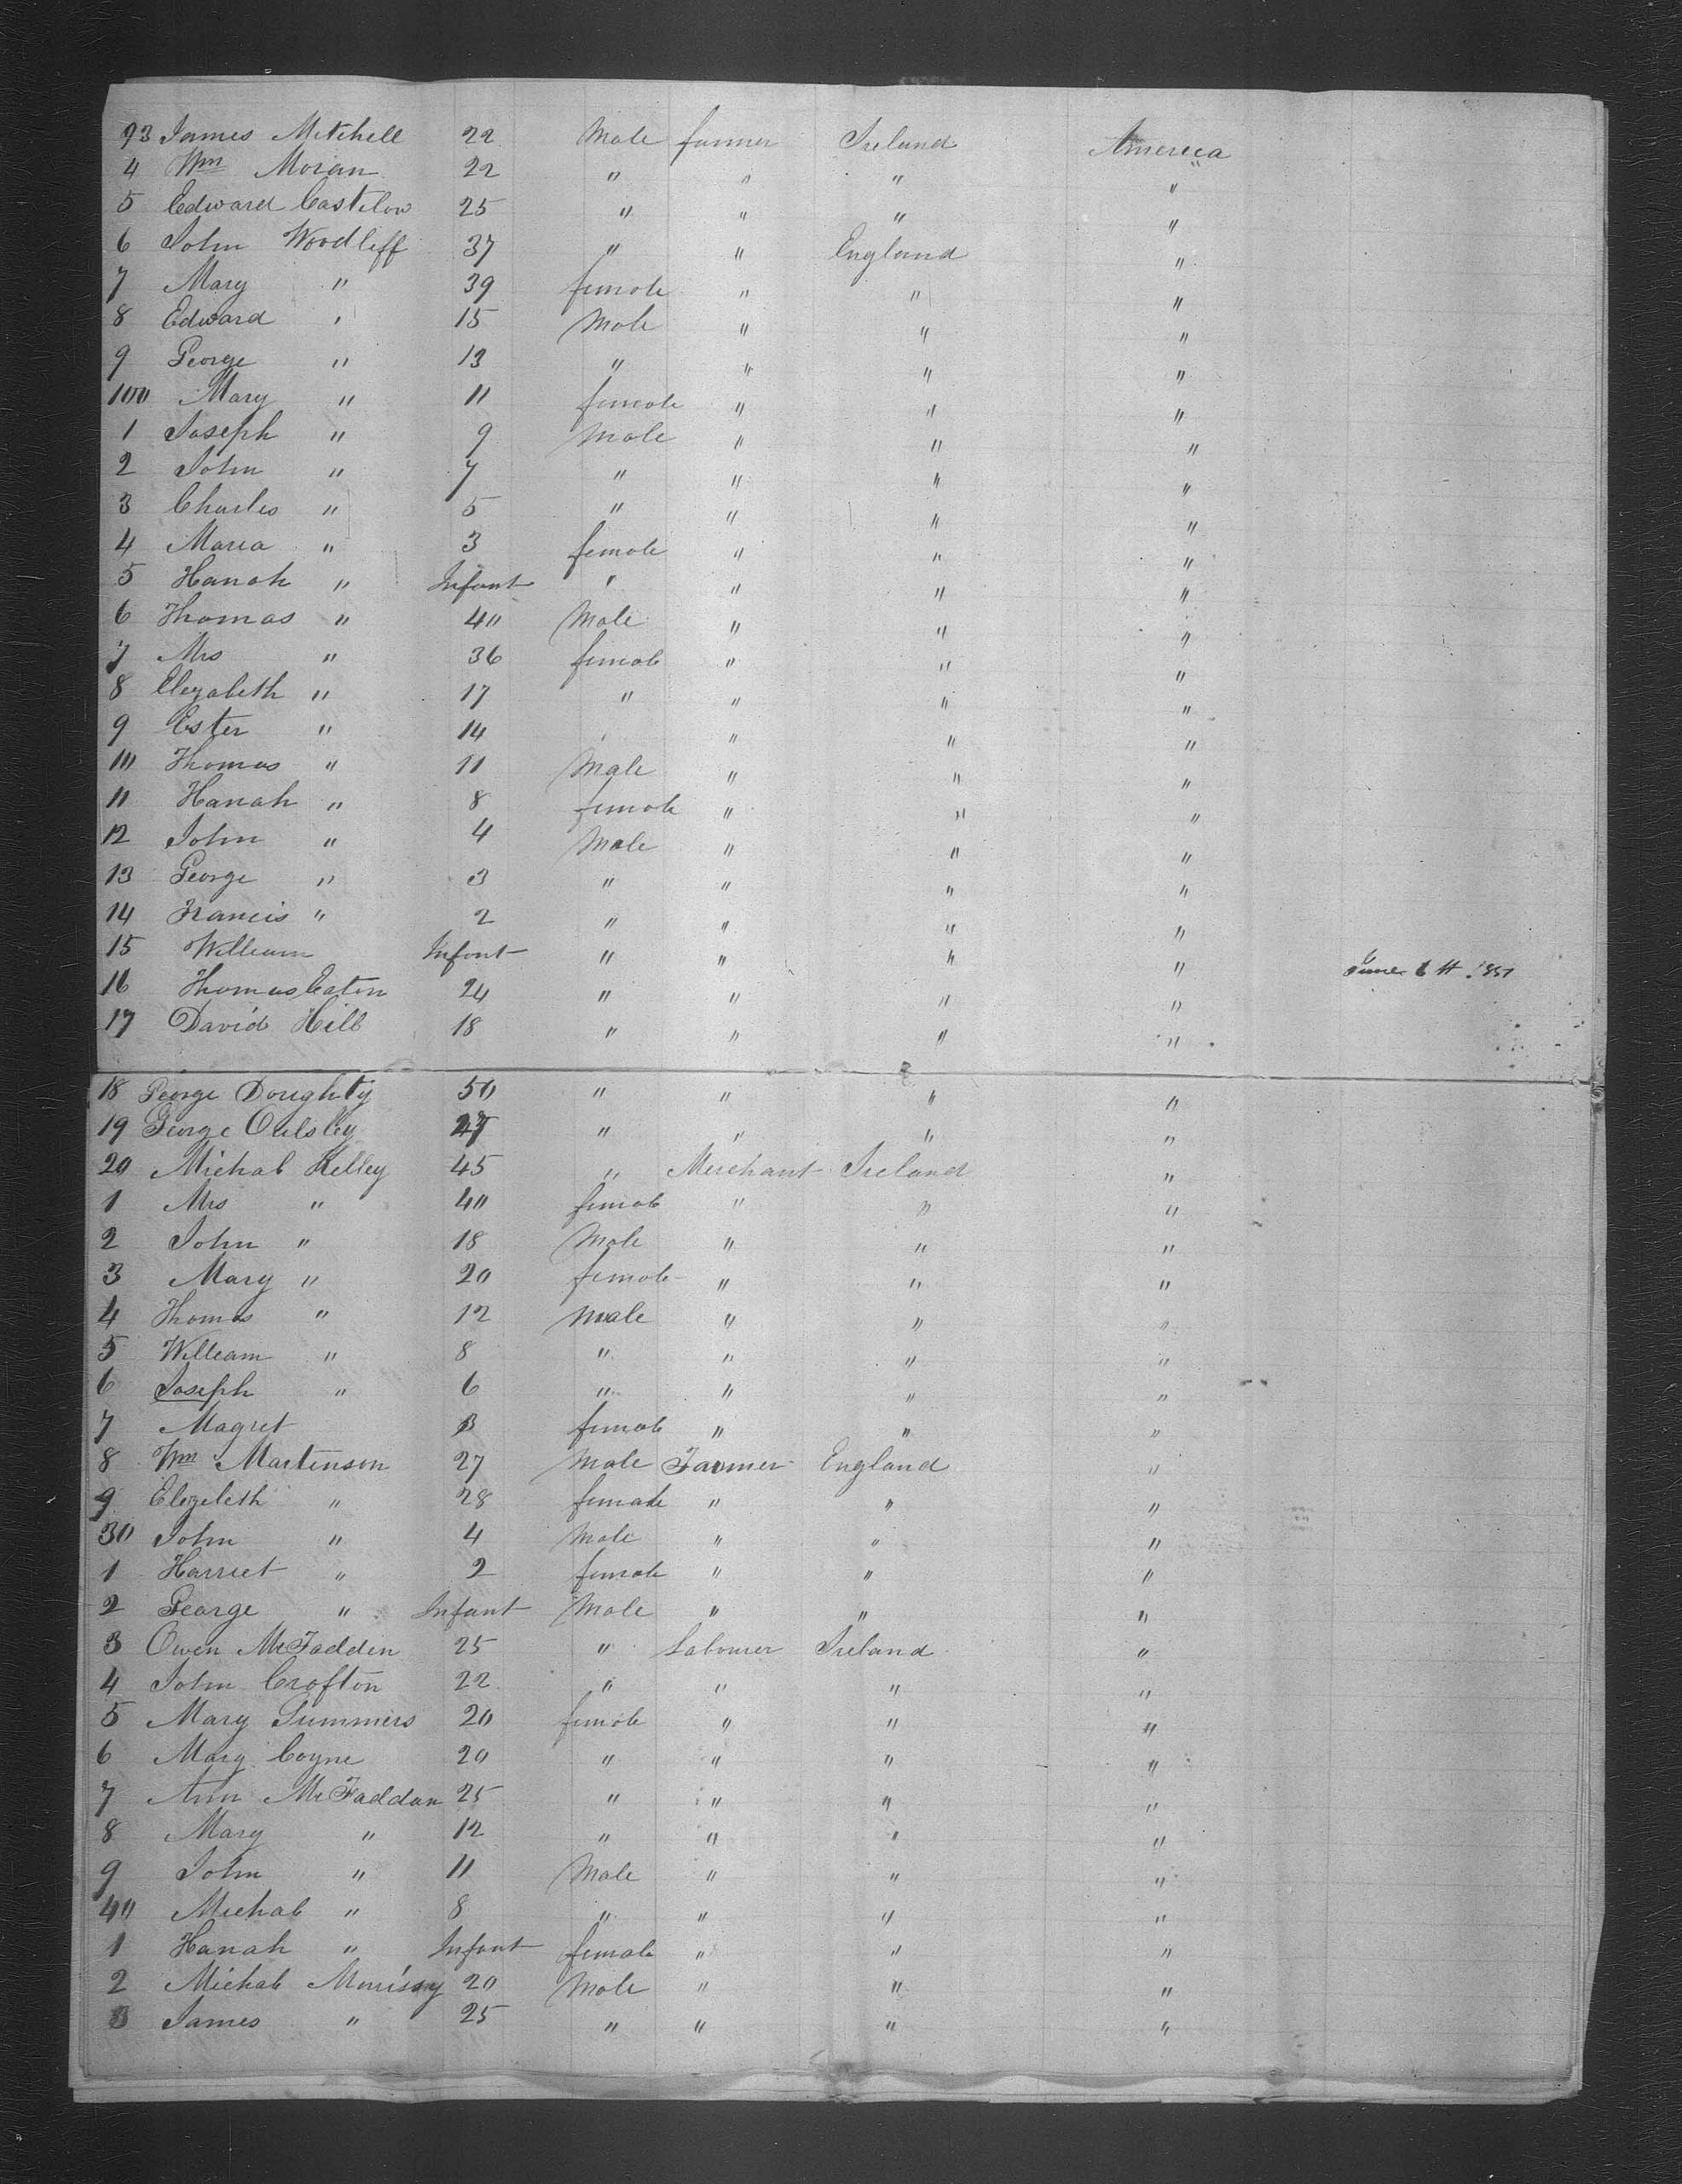 93 James Mitchell 22 Male farmer Ireland America
4 Wm Moran 22 " " " "
5 Edward Castelow 25 " " " "
6 John Woodliff 37 " " England "
7 Mary " 39 female " " "
8 Edward " 15 Male " " "
9 George " 13 " " " "
100 Mary " 11 female " " "
1 Joseph " 9 Male " " "
2 John " 7 " " " "
3 Charles " 5 " " " "
4 Maria " 3 female " " "
5 Hanah " Infant " " " "
6 Thomas " 40 Male " " "
7 Mrs " 36 female " " "
8 Elezabeth " 17 " " " "
9 Ester " 14 " " " "
10 Thomas " 11 Male " " "
11 Hanah " 8 female " " "
12 John " 4 Male " " "
13 George " 3 " " " "
14 Francis " 2 " " " "
15 William Infant " " " "
16 Thomas Eaton 24 " " " "
17 David Hill 18 " " " "
18 George Doughty 50 " " " "
19 George " " " "
20 Michal Kelley 45 " Merchant Ireland "
1 Mrs " 40 female " " "
2 John " 18 Male " " "
3 Mary " 20 female " " "
4 Thomas " 12 Male " " "
5 William " 8 " " " "
6 Joseph " 6 " " " "
7 Magret 3 female " " "
8 Wm Martenson 27 Male Farmer England "
9 Elezebeth " 28 female " " "
30 John " 4 Male " " "
1 Harriet " 2 female " " "
2 George " Infant Male " " "
3 Owen McFadden 25 " Labourer Ireland "
4 John Crofton 22 " " " "
5 Mary Summers 20 female " " "
6 Mary Coyne 20 " " " "
7 Ann McFaddan 25 " " " "
8 Mary " 12 " " " "
9 John " 11 Male " " "
40 Michal " 8 " " " "
1 Hanah " Infant female " " "
2 Michal Morrissy 20 Male " " "
3 James " 25 " " " "